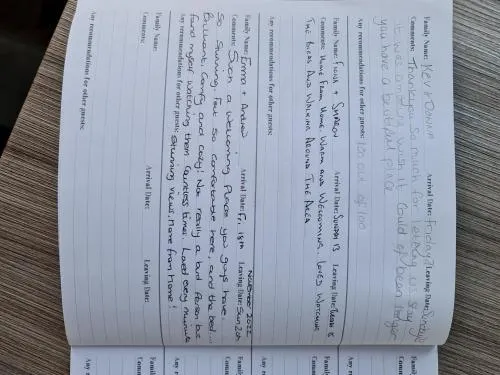 Family Name: Kev + Donna Arrival Date: Friday Leaving Date: Sunday
Comments: Thankyou so much for letting us stay
it was amazing wish it could of been longer
you have a beautiful place
Any recommendations for other guests: 100 out of 100
Family Name: Fiona + Sharon Arrival Date: Sunday 13 Leaving Date: 18
Comments: Home from Home. Warm and Welcoming. Loved Watching
The Birds And Walking Around The Area
Any recommendations for other guests:
November 2022
Family Name: Emma + Andrew Arrival Date: Fri 18th Leaving Date: Sun 20th
Comments: Such a welcoming place you guys have.
So stunning, felt so comfortable here, and the bed...
Brilliant, comfy and cozy! Not really a bird person but
found myself watching them countless times. Loved every minute
Any recommendations for other guests: Stunning views. Home from home!
Family Name: Arrival Date: Leaving Date:
Comments:
Any recommendations for other guests:
Family
Comm
Any r
Family
Comm
Any re
Family
Comm
Any re
Family
Comm
Any re